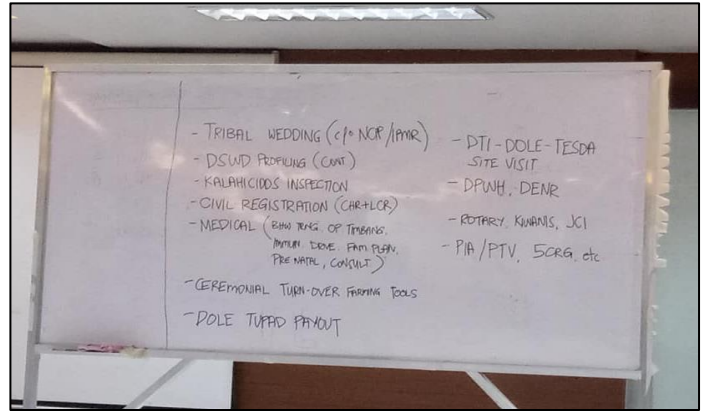 - TRIBAL WEDDING (c/o NCIP/IPMR)
- DSWD PROFILING (CONT)
- KALAHICIDDS INSPECTION
- CIVIL REGISTRATION (CHR+LCR)
- MEDICAL (BHW TRNG. OP TIMBANG.
IMMUN. DRVE. FAM PLAN.
PRE NATAL, CONSULT.)
- CEREMONIAL TURN-OVER FARMING TOOLS
- DOLE TUPAD PAYOUT
- DTI-DOLE-TESDA
SITE VISIT
- DPWH, DENR
- ROTARY, KIWANIS, JCI
- PIA/PTV, 5CRG, etc